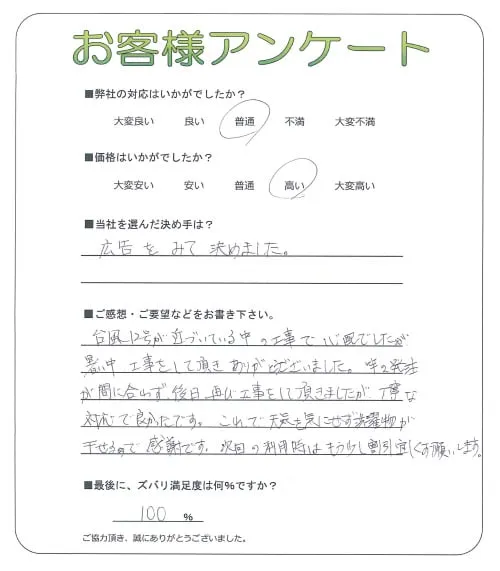 お客様アンケート
■弊社の対応はいかがでしたか？
大変良い 良い 普通 不満 大変不満
■価格はいかがでしたか？
大変安い 安い 普通 高い 大変高い
■当社を選んだ決め手は？
広告をみて決めました。
■ご感想・ご要望などをお書き下さい。
台風12号が近づいている中の工事で心配でしたが
暑い中工事をして頂きありがとうございました。竿の発注
が間に合わず、後日再び工事をして頂きましたが、丁寧な
対応で良かったです。これで天気を気にせず洗濯物が
干せるので感謝です。次回の利用時はもう少し割引宜しくお願いします。
■最後に、ズバリ満足度は何%ですか？
100 %
ご協力頂き、誠にありがとうございました。